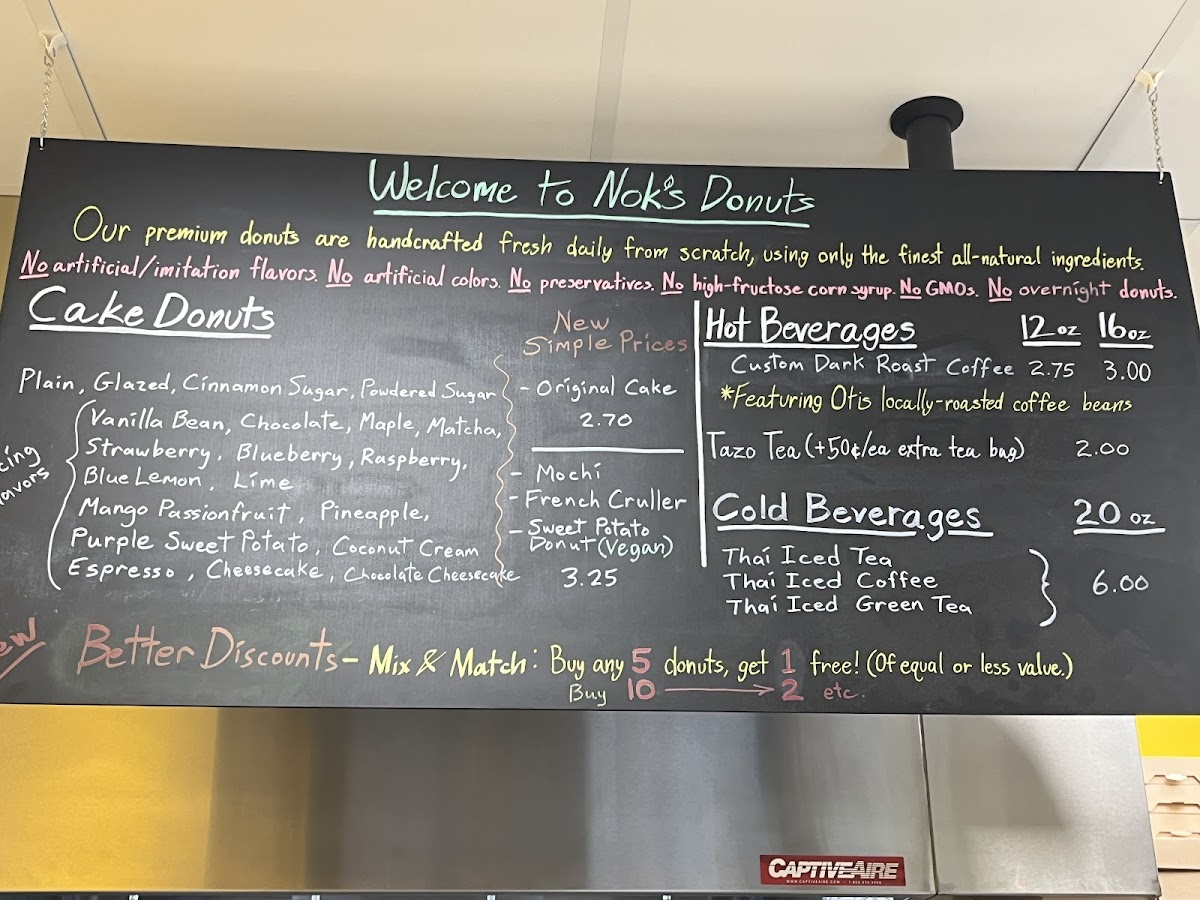 Welcome to Nok's Donuts
Our premium donuts are handcrafted fresh daily from scratch, using only the finest all-natural ingredients.
No artificial/imitation flavors. No artificial colors. No preservatives. No high-fructose corn syrup. No GMOs. No overnight donuts.
Cake Donuts
Plain, Glazed, Cinnamon Sugar, Powdered Sugar
cing
avors
Vanilla Bean, Chocolate, Maple, Matcha,
Strawberry, Blueberry, Raspberry,
Blue Lemon, Lime
Mango Passionfruit, Pineapple,
Purple Sweet Potato, Coconut Cream
Espresso, Cheesecake, Chocolate Cheesecake
New
Simple Prices
- Original Cake
2.70
- Mochi
- French Cruller
- Sweet Potato
Donut (Vegan)
3.25
Hot Beverages 12 oz 16 oz
Custom Dark Roast Coffee 2.75 3.00
*Featuring Otis locally-roasted coffee beans
Tazo Tea (+50¢/ea extra tea bag) 2.00
Cold Beverages 20 oz
Thai Iced Tea
Thai Iced Coffee
Thai Iced Green Tea
6.00
ew
Better Discounts - Mix & Match: Buy any 5 donuts, get 1 free! (Of equal or less value.)
Buy 10 → 2 etc.
CAPTIVEAIRE